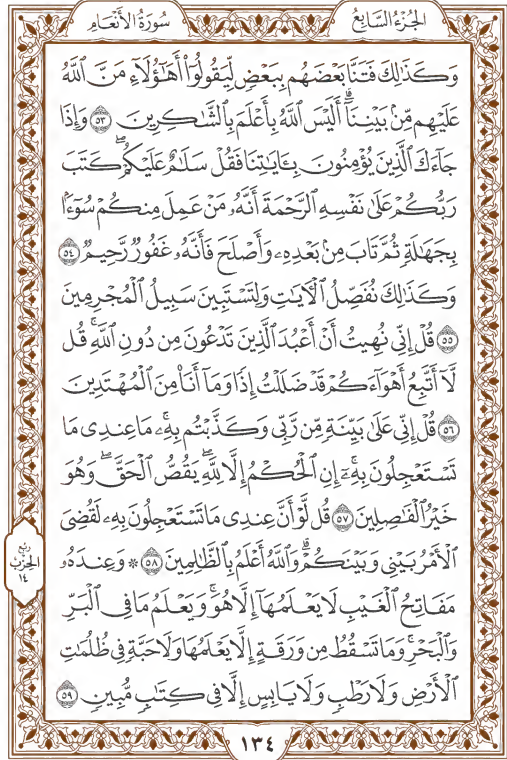 الجُزْءُ السَّابِعُ
سُورَةُ الأَنْعَامِ
وَكَذَٰلِكَ فَتَنَّا بَعْضَهُم بِبَعْضٍ لِّيَقُولُوٓا۟ أَهَـٰٓؤُلَآءِ مَنَّ ٱللَّهُ
عَلَيْهِم مِّنۢ بَيْنِنَآ ۗ أَلَيْسَ ٱللَّهُ بِأَعْلَمَ بِٱلشَّـٰكِرِينَ ٥٣ وَإِذَا
جَآءَكَ ٱلَّذِينَ يُؤْمِنُونَ بِـَٔايَـٰتِنَا فَقُلْ سَلَـٰمٌ عَلَيْكُمْ ۖ كَتَبَ
رَبُّكُمْ عَلَىٰ نَفْسِهِ ٱلرَّحْمَةَ ۖ أَنَّهُۥ مَنْ عَمِلَ مِنكُمْ سُوٓءًۢا
بِجَهَـٰلَةٍ ثُمَّ تَابَ مِنۢ بَعْدِهِۦ وَأَصْلَحَ فَأَنَّهُۥ غَفُورٌ رَّحِيمٌ ٥٤
وَكَذَٰلِكَ نُفَصِّلُ ٱلْـَٔايَـٰتِ وَلِتَسْتَبِينَ سَبِيلُ ٱلْمُجْرِمِينَ
٥٥ قُلْ إِنِّى نُهِيتُ أَنْ أَعْبُدَ ٱلَّذِينَ تَدْعُونَ مِن دُونِ ٱللَّهِ ۚ قُل
لَّآ أَتَّبِعُ أَهْوَآءَكُمْ ۙ قَدْ ضَلَلْتُ إِذًا وَمَآ أَنَا۠ مِنَ ٱلْمُهْتَدِينَ
٥٦ قُلْ إِنِّى عَلَىٰ بَيِّنَةٍ مِّن رَّبِّى وَكَذَّبْتُم بِهِۦ ۚ مَا عِندِى مَا
تَسْتَعْجِلُونَ بِهِۦٓ ۚ إِنِ ٱلْحُكْمُ إِلَّا لِلَّهِ ۖ يَقُصُّ ٱلْحَقَّ ۖ وَهُوَ
خَيْرُ ٱلْفَـٰصِلِينَ ٥٧ قُل لَّوْ أَنَّ عِندِى مَا تَسْتَعْجِلُونَ بِهِۦ لَقُضِىَ
ٱلْأَمْرُ بَيْنِى وَبَيْنَكُمْ ۗ وَٱللَّهُ أَعْلَمُ بِٱلظَّـٰلِمِينَ ٥٨ ۞ وَعِندَهُۥ
مَفَاتِحُ ٱلْغَيْبِ لَا يَعْلَمُهَآ إِلَّا هُوَ ۚ وَيَعْلَمُ مَا فِى ٱلْبَرِّ
وَٱلْبَحْرِ ۚ وَمَا تَسْقُطُ مِن وَرَقَةٍ إِلَّا يَعْلَمُهَا وَلَا حَبَّةٍ فِى ظُلُمَـٰتِ
ٱلْأَرْضِ وَلَا رَطْبٍ وَلَا يَابِسٍ إِلَّا فِى كِتَـٰبٍ مُّبِينٍ ٥٩
ربع
الحزب
١٤
١٣٤